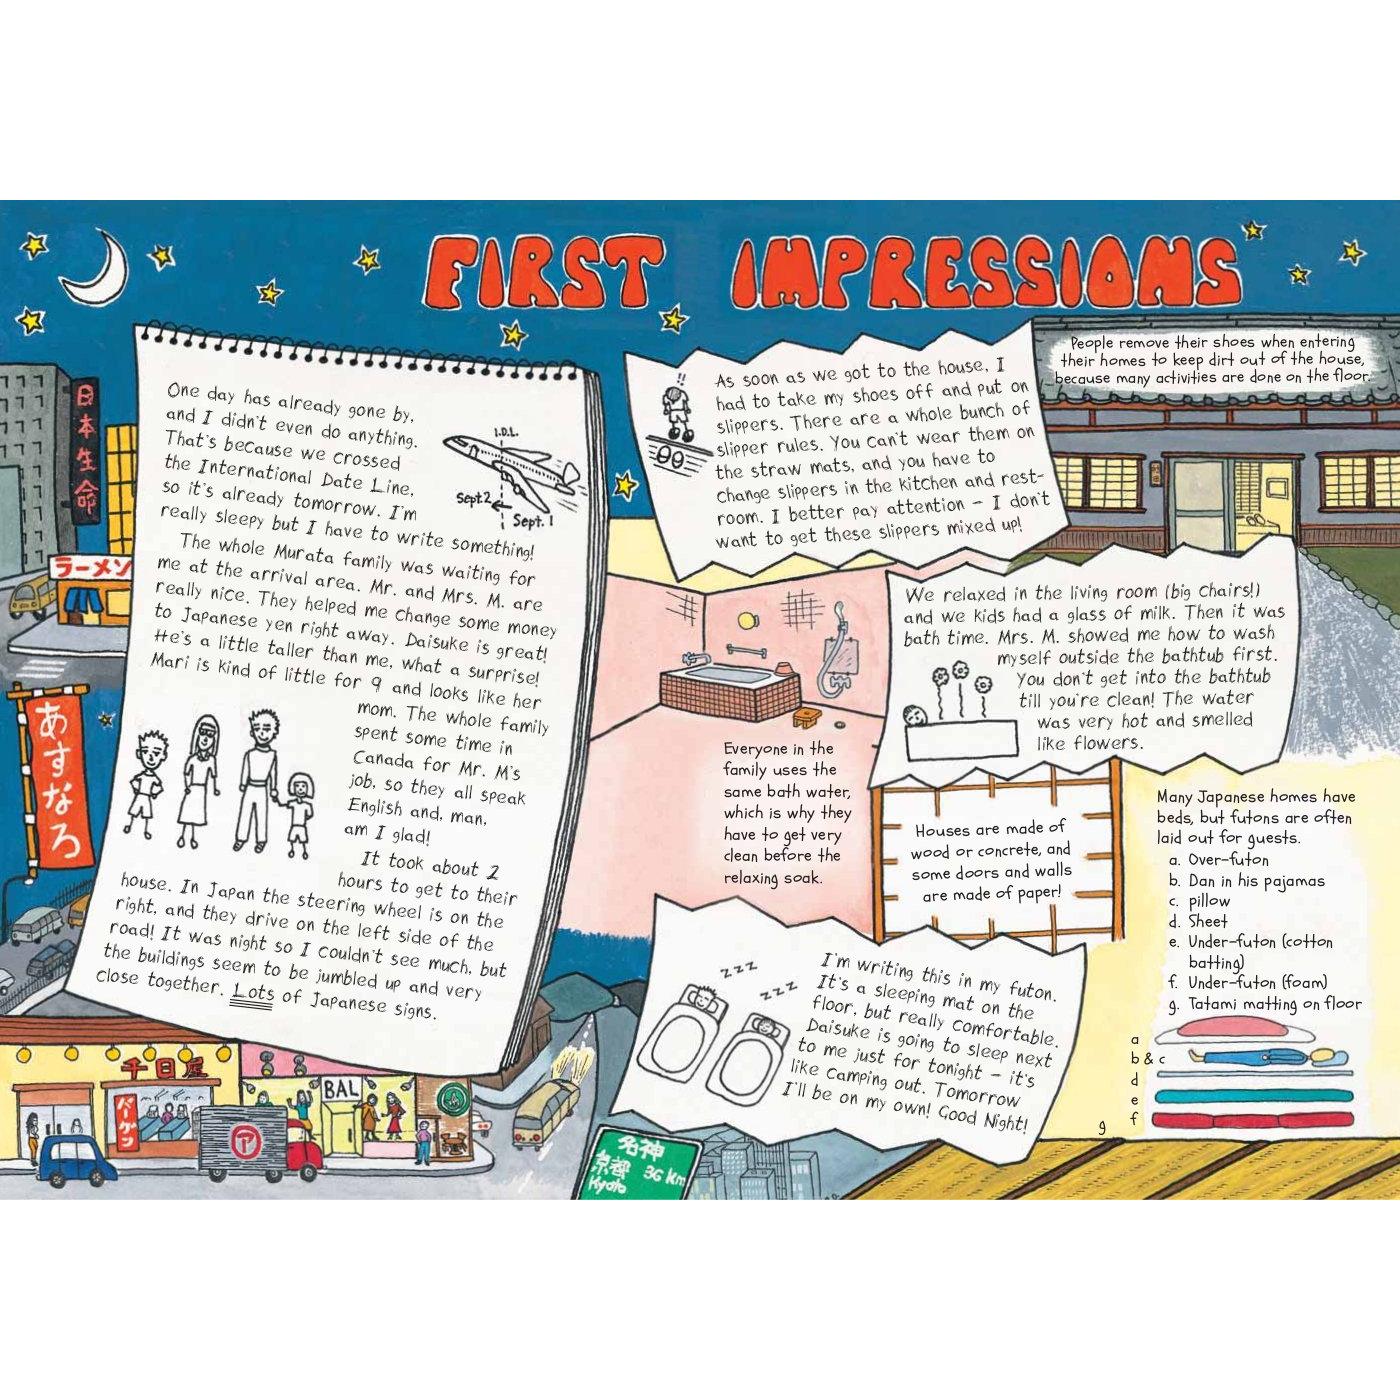 FIRST IMPRESSIONS
One day has already gone by,
and I didn't even do anything.
That's because we crossed
the International Date Line,
so it's already tomorrow. I'm
really sleepy but I have to write something!
I.D.L.
Sept.2
Sept. 1
The whole Murata family was waiting for
me at the arrival area. Mr. and Mrs. M. are
really nice. They helped me change some money
to Japanese yen right away. Daisuke is great!
He's a little taller than me, what a surprise!
Mari is kind of little for 9 and looks like her
mom. The whole family
spent some time in
Canada for Mr. M's
job, so they all speak
English and, man,
am I glad!
It took about 2
hours to get to their
house. In Japan the steering wheel is on the
right, and they drive on the left side of the
road! It was night so I couldn't see much, but
the buildings seem to be jumbled up and very
close together. Lots of Japanese signs.
日本生命
ラーメン
あすなろ
千日屋
バーゲン
BAL
ア
名神
京都 36 Km
Kyoto
!!
As soon as we got to the house, I
had to take my shoes off and put on
slippers. There are a whole bunch of
slipper rules. You can't wear them on
the straw mats, and you have to
change slippers in the kitchen and rest-
room. I better pay attention – I don't
want to get these slippers mixed up!
People remove their shoes when entering
their homes to keep dirt out of the house,
because many activities are done on the floor.
We relaxed in the living room (big chairs!)
and we kids had a glass of milk. Then it was
bath time. Mrs. M. showed me how to wash
myself outside the bathtub first.
You don't get into the bathtub
till you're clean! The water
was very hot and smelled
like flowers.
Everyone in the
family uses the
same bath water,
which is why they
have to get very
clean before the
relaxing soak.
Houses are made of
wood or concrete, and
some doors and walls
are made of paper!
Many Japanese homes have
beds, but futons are often
laid out for guests.
a. Over-futon
b. Dan in his pajamas
c. pillow
d. Sheet
e. Under-futon (cotton
batting)
f. Under-futon (foam)
g. Tatami matting on floor
a
b & c
d
e
f
g
zzz
zzz
I'm writing this in my futon.
It's a sleeping mat on the
floor, but really comfortable.
Daisuke is going to sleep next
to me just for tonight – it's
like camping out. Tomorrow
I'll be on my own! Good Night!